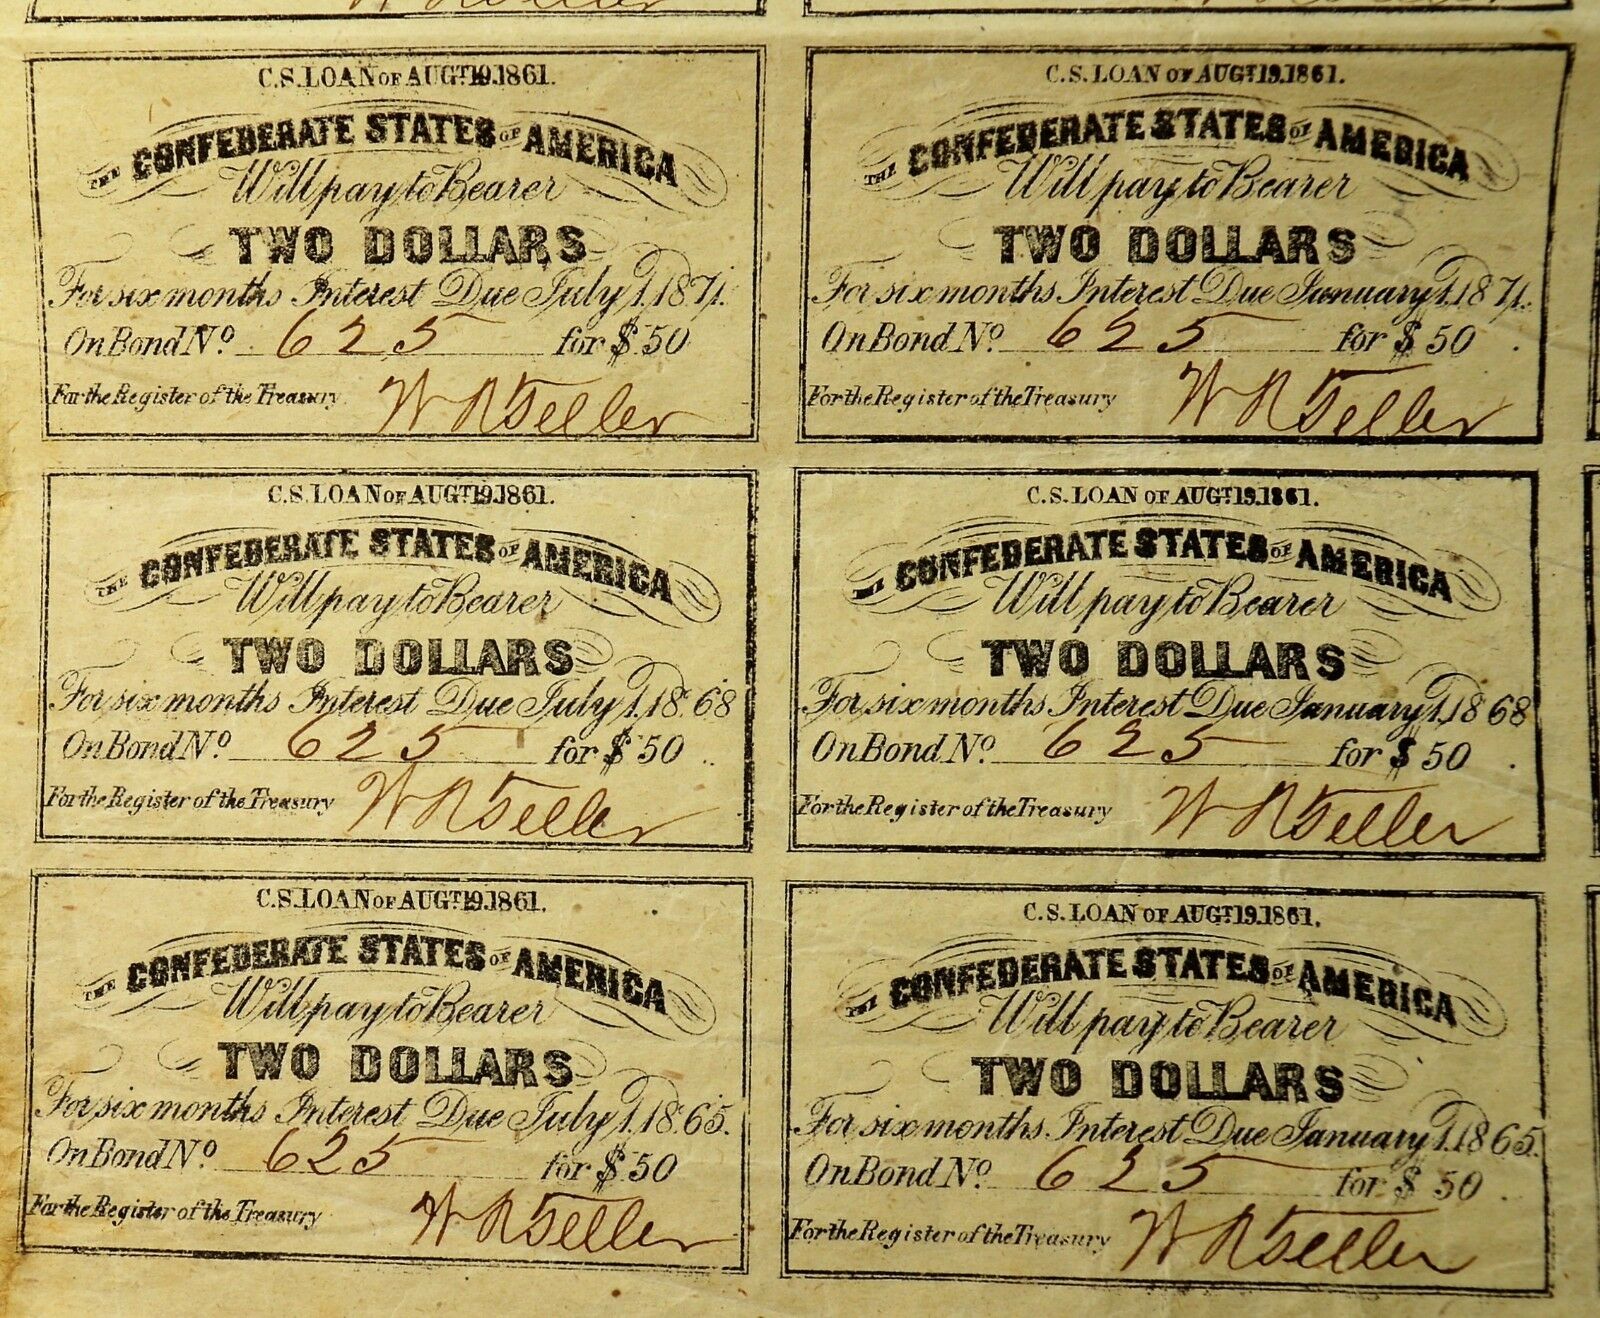 C.S. LOAN OF AUGT. 19. 1861.
THE CONFEDERATE STATES OF AMERICA
Will pay to Bearer
TWO DOLLARS
For six months Interest Due July 1. 1871.
On Bond No. 625 for $50
For the Register of the Treasury

C.S. LOAN OF AUGT. 19. 1861.
THE CONFEDERATE STATES OF AMERICA
Will pay to Bearer
TWO DOLLARS
For six months Interest Due January 1. 1871.
On Bond No. 625 for $50
For the Register of the Treasury

C.S. LOAN OF AUGT. 19. 1861.
THE CONFEDERATE STATES OF AMERICA
Will pay to Bearer
TWO DOLLARS
For six months Interest Due July 1. 1868
On Bond No. 625 for $50
For the Register of the Treasury

C.S. LOAN OF AUGT. 19. 1861.
THE CONFEDERATE STATES OF AMERICA
Will pay to Bearer
TWO DOLLARS
For six months Interest Due January 1. 1868
On Bond No. 625 for $50
For the Register of the Treasury

C.S. LOAN OF AUGT. 19. 1861.
THE CONFEDERATE STATES OF AMERICA
Will pay to Bearer
TWO DOLLARS
For six months Interest Due July 1. 1865.
On Bond No. 625 for $50
For the Register of the Treasury

C.S. LOAN OF AUGT. 19. 1861.
THE CONFEDERATE STATES OF AMERICA
Will pay to Bearer
TWO DOLLARS
For six months Interest Due January 1. 1865.
On Bond No. 625 for $50
For the Register of the Treasury